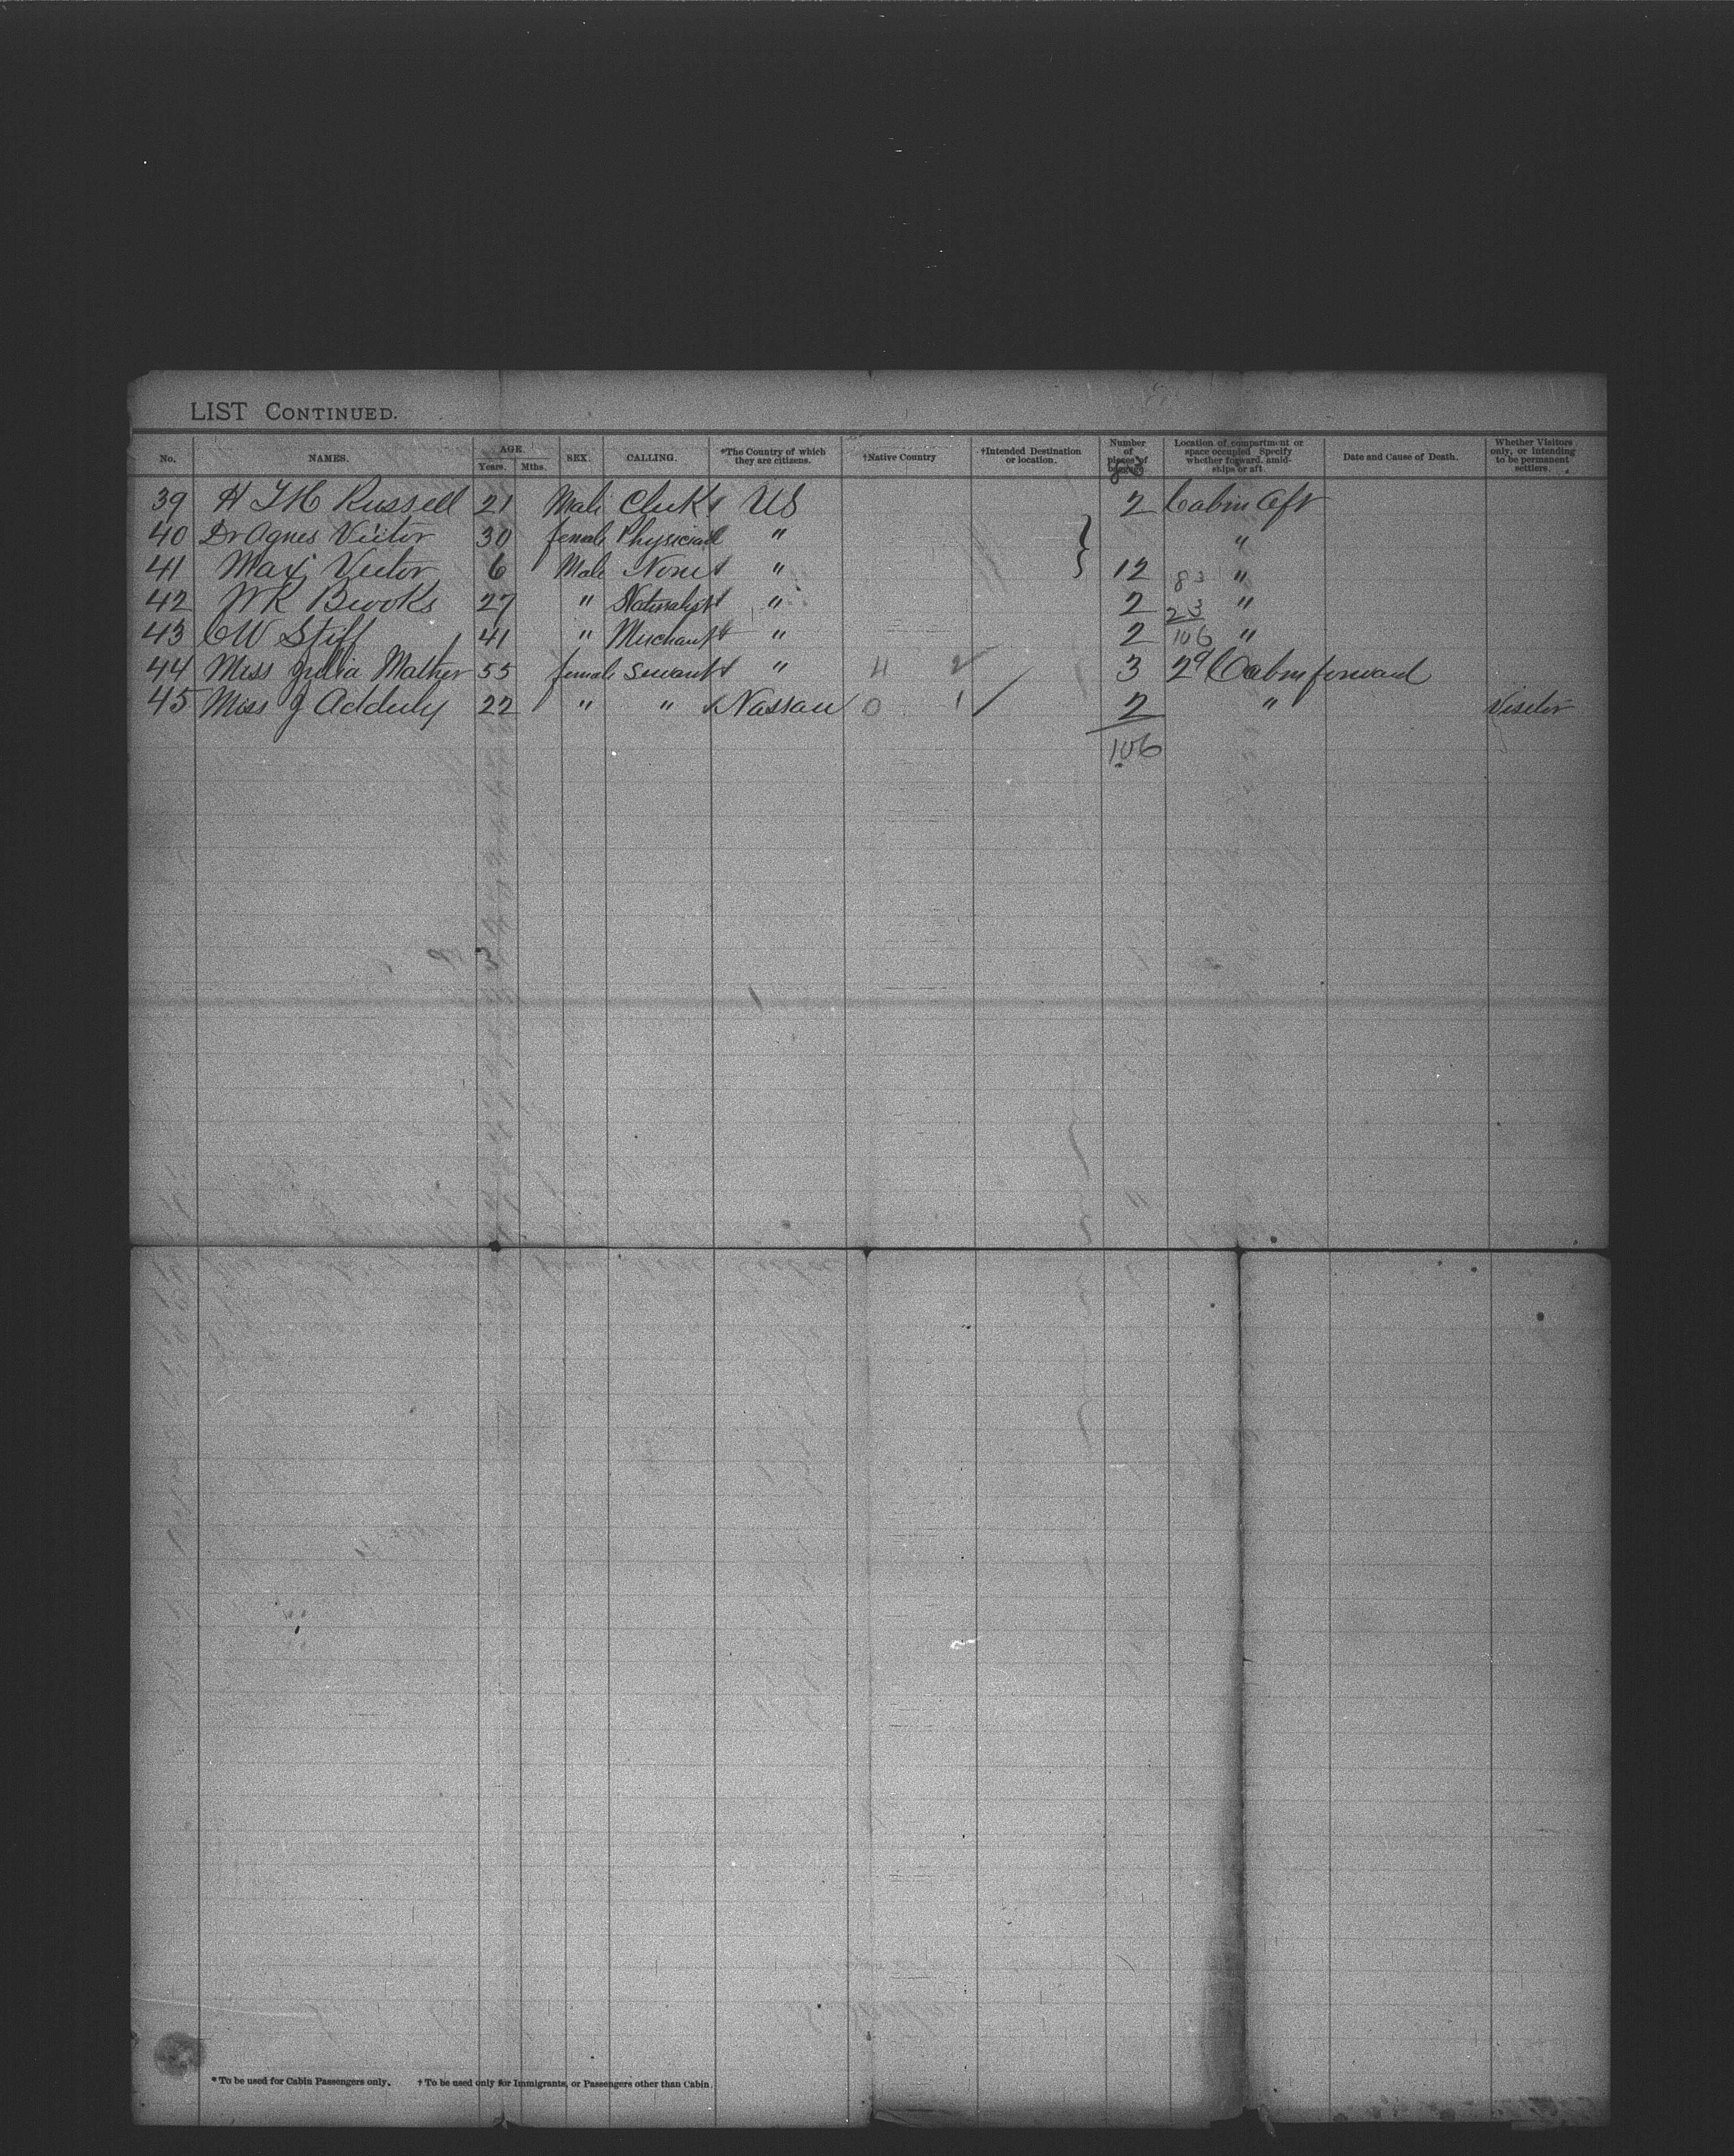 LIST CONTINUED.
No. NAMES. AGE Years. Mths. SEX. CALLING. *The Country of which they are citizens. †Native Country †Intended Destination or location. Number of pieces of baggage. Location of compartment or space occupied Specify whether forward, amidships or aft Date and Cause of Death. Whether Visitors only, or intending to be permanent settlers.
39 H T H Russell 21 Male Clerk US 2 Cabin Aft
40 Dr Agnes Victor 30 female Physician " "
41 Max Victor 6 Male None " } 12 83 "
42 W K Brooks 27 " Naturalist " 2 23 "
43 C W Stiff 41 " Merchant " 2 106 "
44 Miss Julia Mather 55 female Servant " 3 2d Cabin forward
45 Miss J Adderly 22 " " Nassau 0 1 / 2 " Visitor
106
* To be used for Cabin Passengers only. † To be used only for Immigrants, or Passengers other than Cabin.